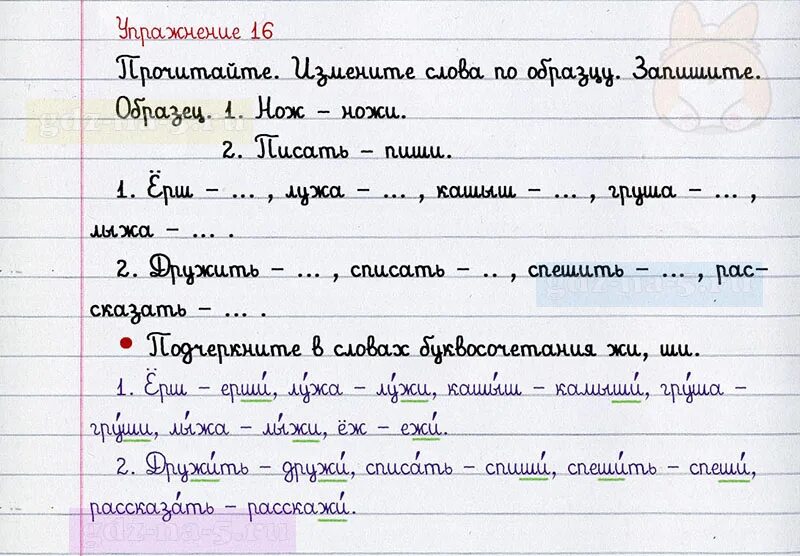 Упражнение 16
Прочитайте. Измените слова по образцу. Запишите.
Образец. 1. Нож – ножи.
gdz-na-5.ru
2. Писать – пиши.
1. Ёрш – ... , лужа – ... , кашыш – ... , груша – ... ,
лыжа – ... .
2. Дружить – ... , списать – .. , спешить – ... , рас-
gdz-na-5.ru
сказать – ... .
• Подчеркните в словах буквосочетания жи, ши.
1. Ёрш – ерши́, лу́жа – лу́жи, кашы́ш – камыши́, гру́ша –
гру́ши, лы́жа – лы́жи, ёж – ежи́.
2. Дружи́ть – дружи́, списа́ть – спиши́, спеши́ть – спеши́,
рассказа́ть – расскажи́.
gdz-na-5.ru